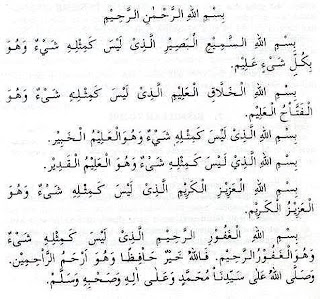 بِسْمِ اللهِ الرَّحْمٰنِ الرَّحِيْمِ
بِسْمِ اللهِ السَّمِيْعِ الْبَصِيْرِ الَّذِىْ لَيْسَ كَمِثْلِهِ شَىْءٌ وَهُوَ
بِكُلِّ شَىْءٍ عَلِيْمٌ.
بِسْمِ اللهِ الْخَلَّاقِ الْعَلِيْمِ الَّذِىْ لَيْسَ كَمِثْلِهِ شَىْءٌ وَهُوَ
الْفَتَّاحُ الْعَلِيْمُ.
بِسْمِ اللهِ الَّذِىْ لَيْسَ كَمِثْلِهِ شَىْءٌ وَهُوَ الْعَلِيْمُ الْخَبِيْرُ.
بِسْمِ اللهِ الَّذِىْ لَيْسَ كَمِثْلِهِ شَىْءٌ وَهُوَ الْعَلِيْمُ الْقَدِيْرُ.
بِسْمِ اللهِ الْعَزِيْزِ الْكَرِيْمِ الَّذِىْ لَيْسَ كَمِثْلِهِ شَىْءٌ وَهُوَ
الْعَزِيْزُ الْكَرِيْمُ.
بِسْمِ اللهِ الْغَفُوْرِ الرَّحِيْمِ الَّذِىْ لَيْسَ كَمِثْلِهِ شَىْءٌ
وَهُوَ الْغَفُوْرُ الرَّحِيْمُ. فَاللهُ خَيْرٌ حَافِظًا وَهُوَ اَرْحَمُ الرَّاحِمِيْنَ.
وَصَلَّى اللهُ عَلٰى سَيِّدِنَا مُحَمَّدٍ وَعَلٰى اٰلِهِ وَصَحْبِهِ وَسَلَّمَ.